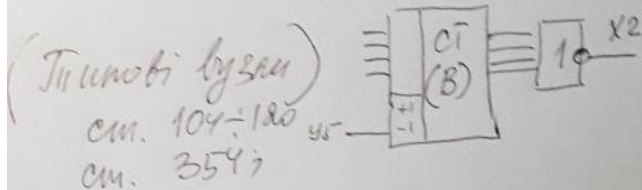 (Типові вузли)
ст. 104÷120
ст. 354;
CT
(B)
+1
-1
y5
1
X2